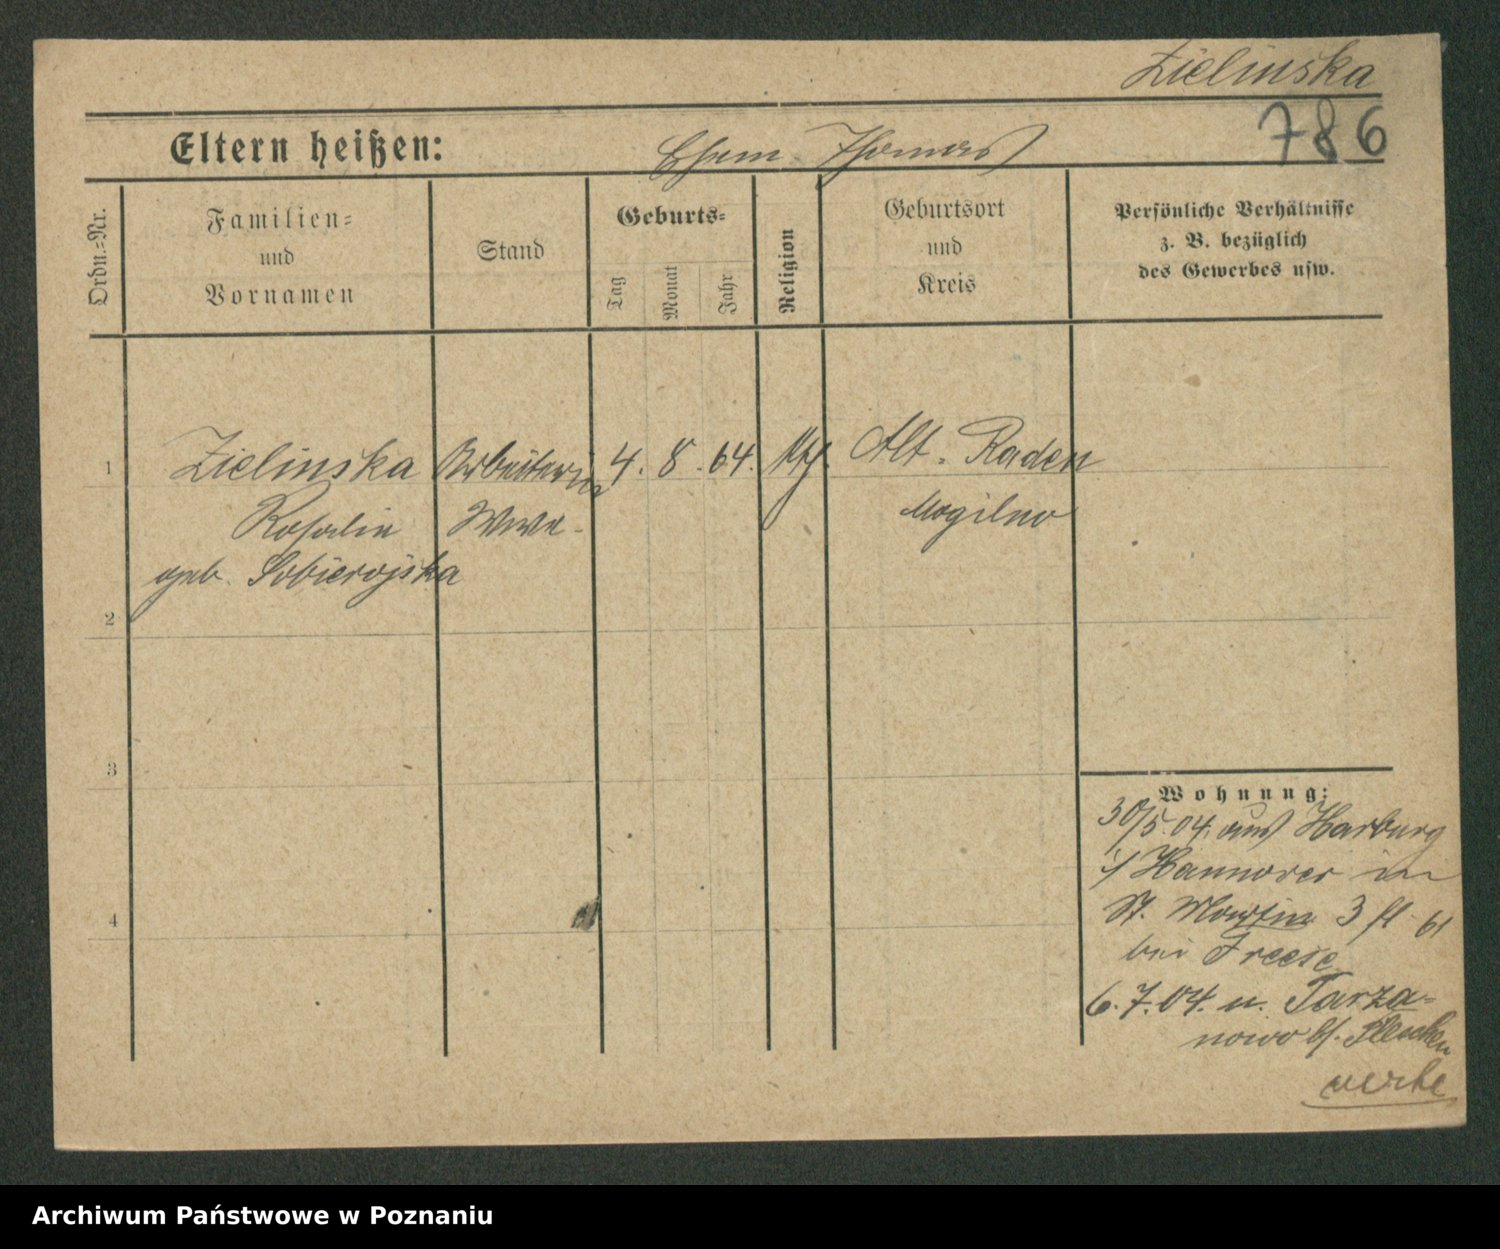 Zielinska
786
Eltern heißen: Ehem. Thomas
Ordn.=Nr.
Familien=
und
Vornamen
Stand
Geburts=
Tag
Monat
Jahr
Religion
Geburtsort
und
Kreis
Persönliche Verhältnisse
z. B. bezüglich
des Gewerbes usw.
1 Zielinska Arbeiterin 4. 8. 64. Alt-Raden
Rosalie Wwe. Mogilno
geb.
2
3
4
Wohnung:
30/5.04. aus Harburg
i/ Hannover in
St. Martin 3 61
bei Freese
6.7.04. n. Tarza=
nowo b/. Pleschen